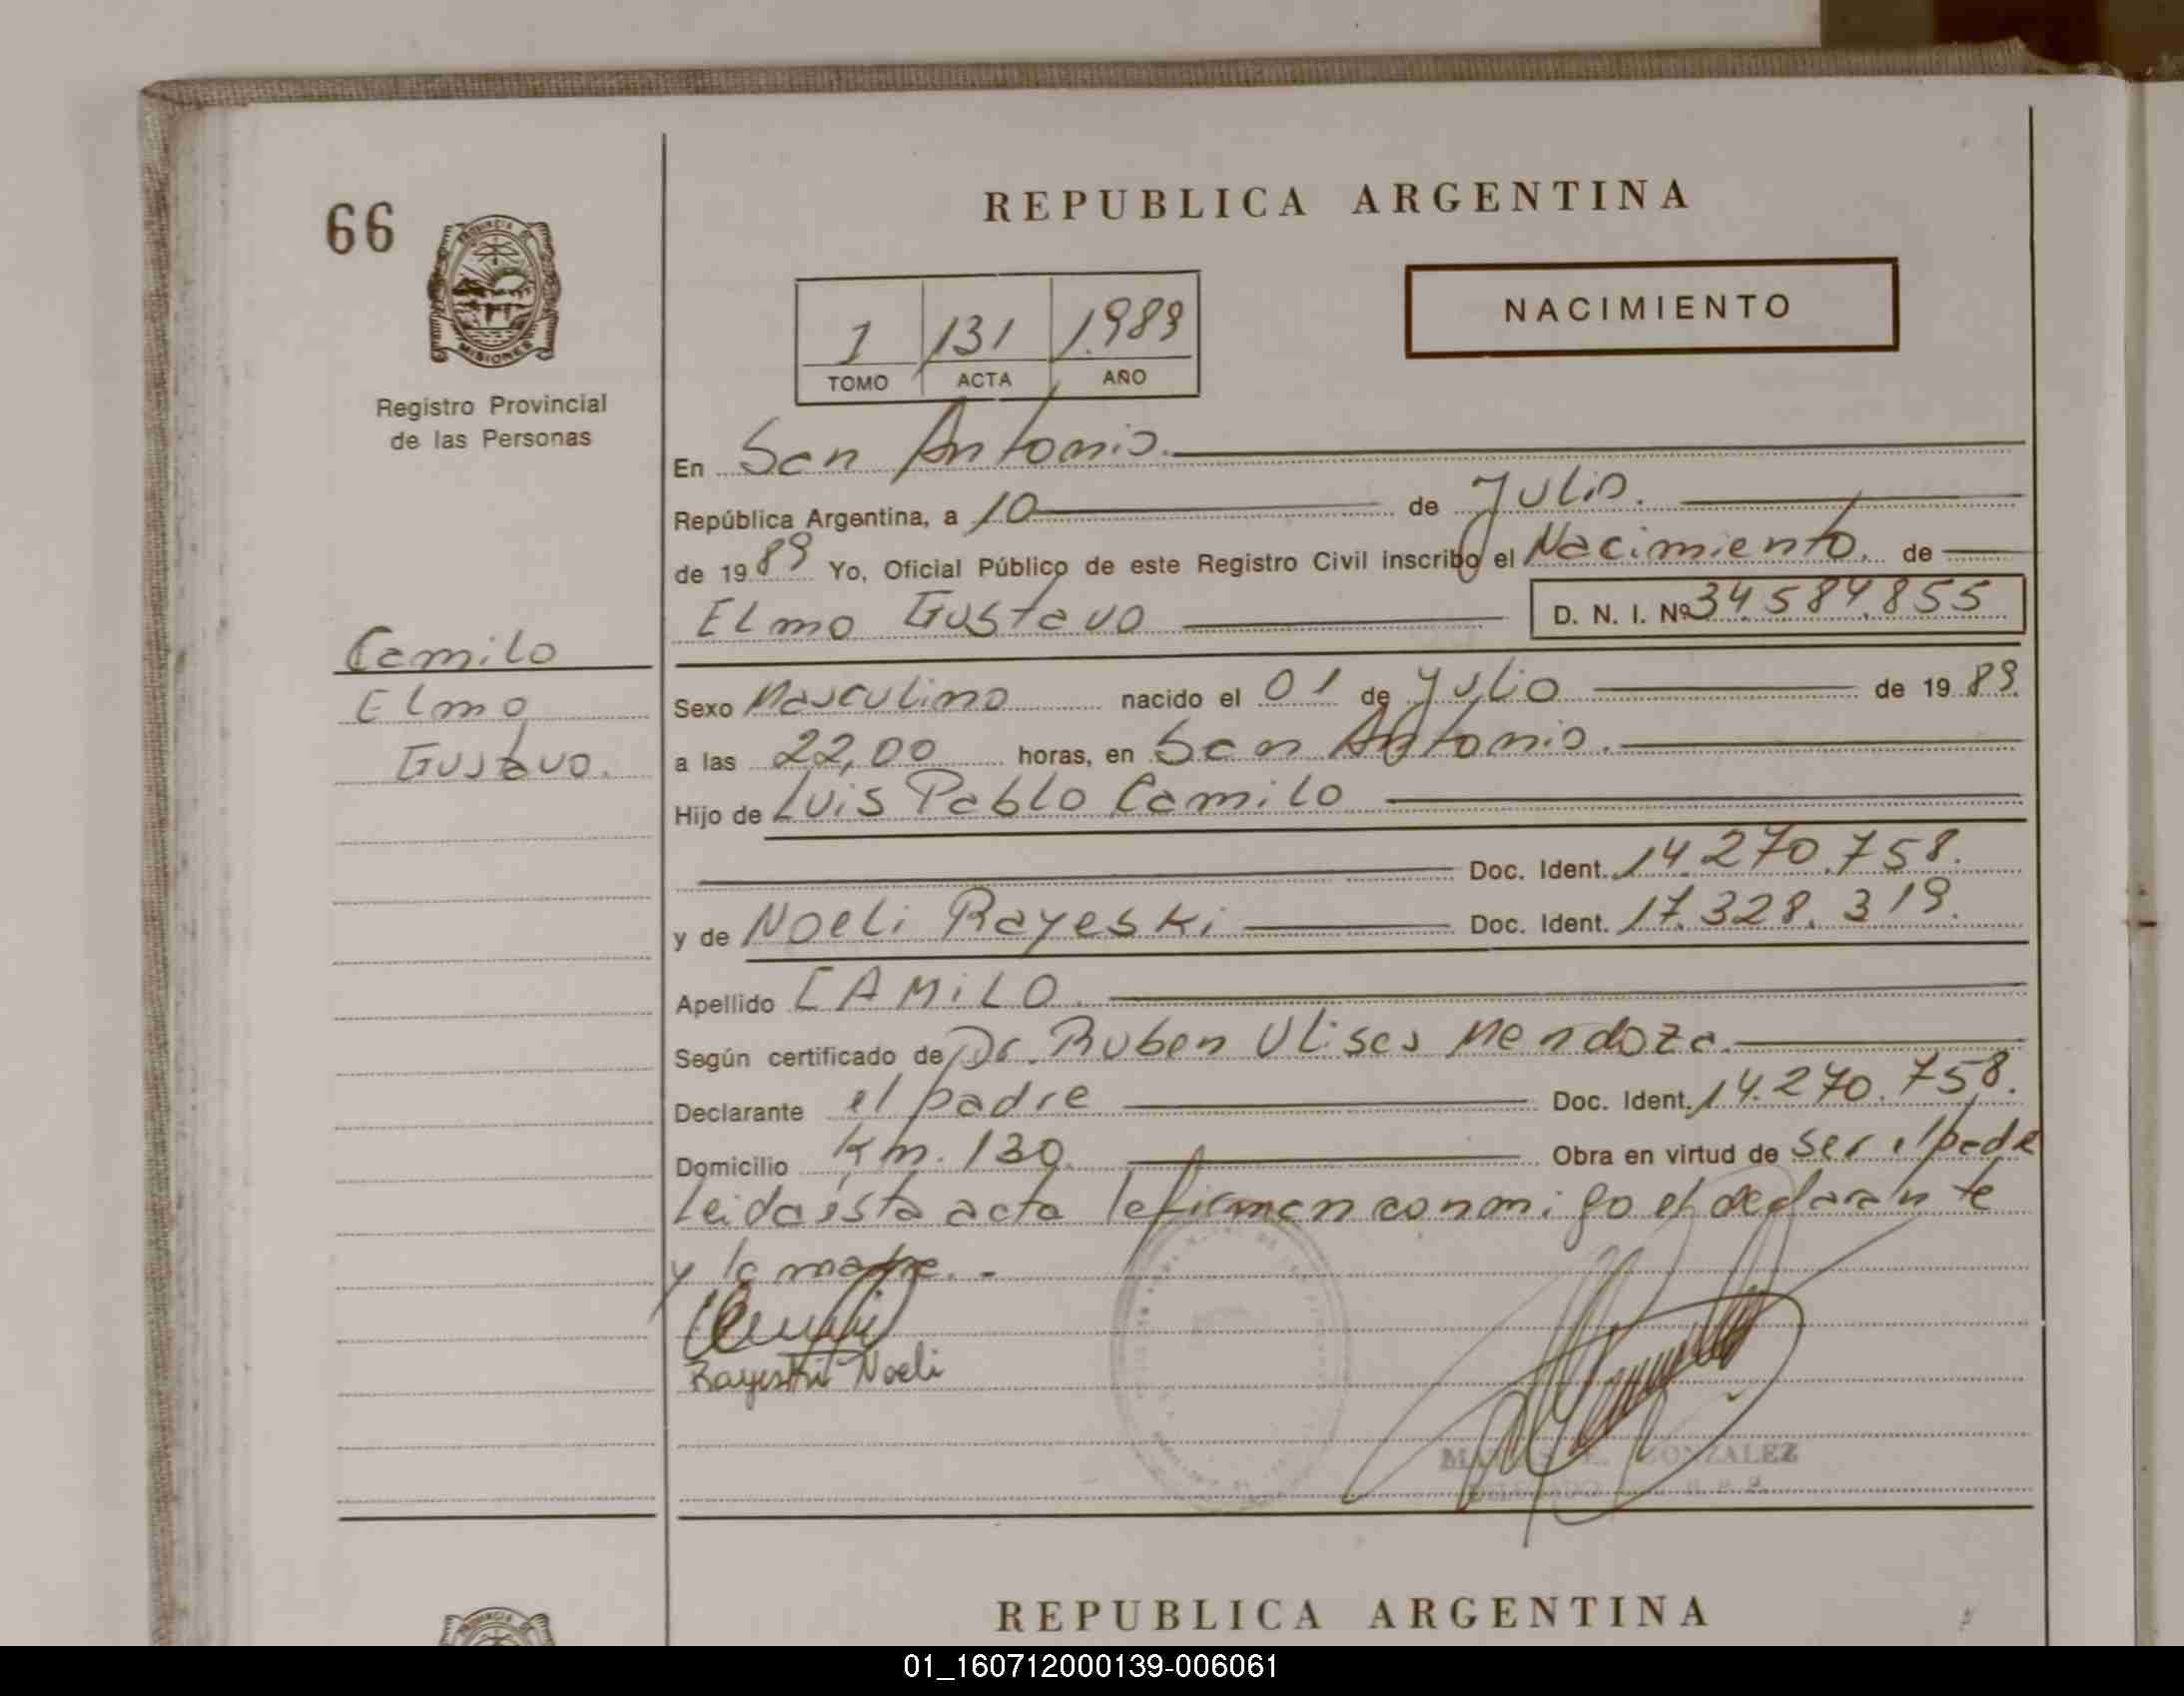 66
PROVINCIA DE
MISIONES
Registro Provincial
de las Personas
REPUBLICA ARGENTINA
NACIMIENTO
1 131 1.989
TOMO ACTA AÑO
En San Antonio.
República Argentina, a 10 de Julio.
de 1989 Yo, Oficial Público de este Registro Civil inscribo el Nacimiento. de
Elmo Gustavo D. N. I. Nº 34.584.855
Camilo
Elmo
Gustavo.
Sexo Masculino nacido el 01 de Julio de 1989.
a las 22,00 horas, en San Antonio.
Hijo de Luis Pablo Camilo
Doc. Ident. 14.270.758.
y de Noeli Rayeski Doc. Ident. 17.328.319.
Apellido CAMiLO.
Según certificado de Dr. Ruben Ulises Mendoza.
Declarante el padre Doc. Ident. 14.270.758.
Domicilio Km. 130. Obra en virtud de ser el padre
Leida ésta acta la firman conmigo el declarante
y la madre. -
Rayeski Noeli
GONZALEZ
REPUBLICA ARGENTINA
01_160712000139-006061